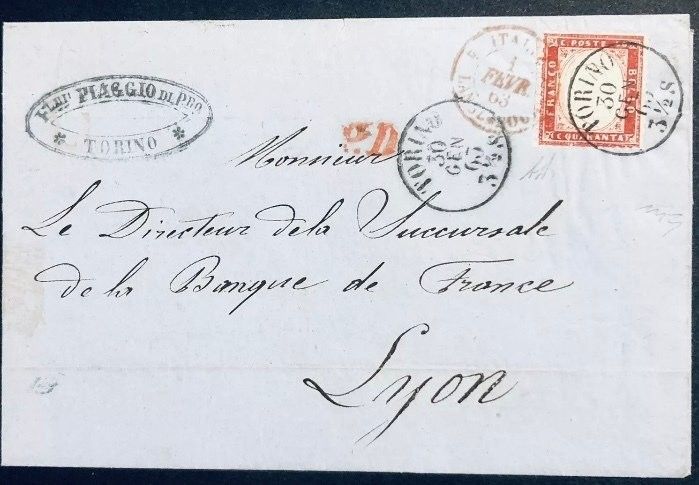 PIAGGIO DI PRO
* TORINO *
ITAL
1
FEVR
63
P.D.
TORINO
30
GEN
63
3½ S.
C. POSTE
FRANCO
BOLLO
C. QUARANTA
TORINO
30
GEN
63
3½ S.
Monsieur
Le Directeur de la Succursale
de la Banque de France
Lyon